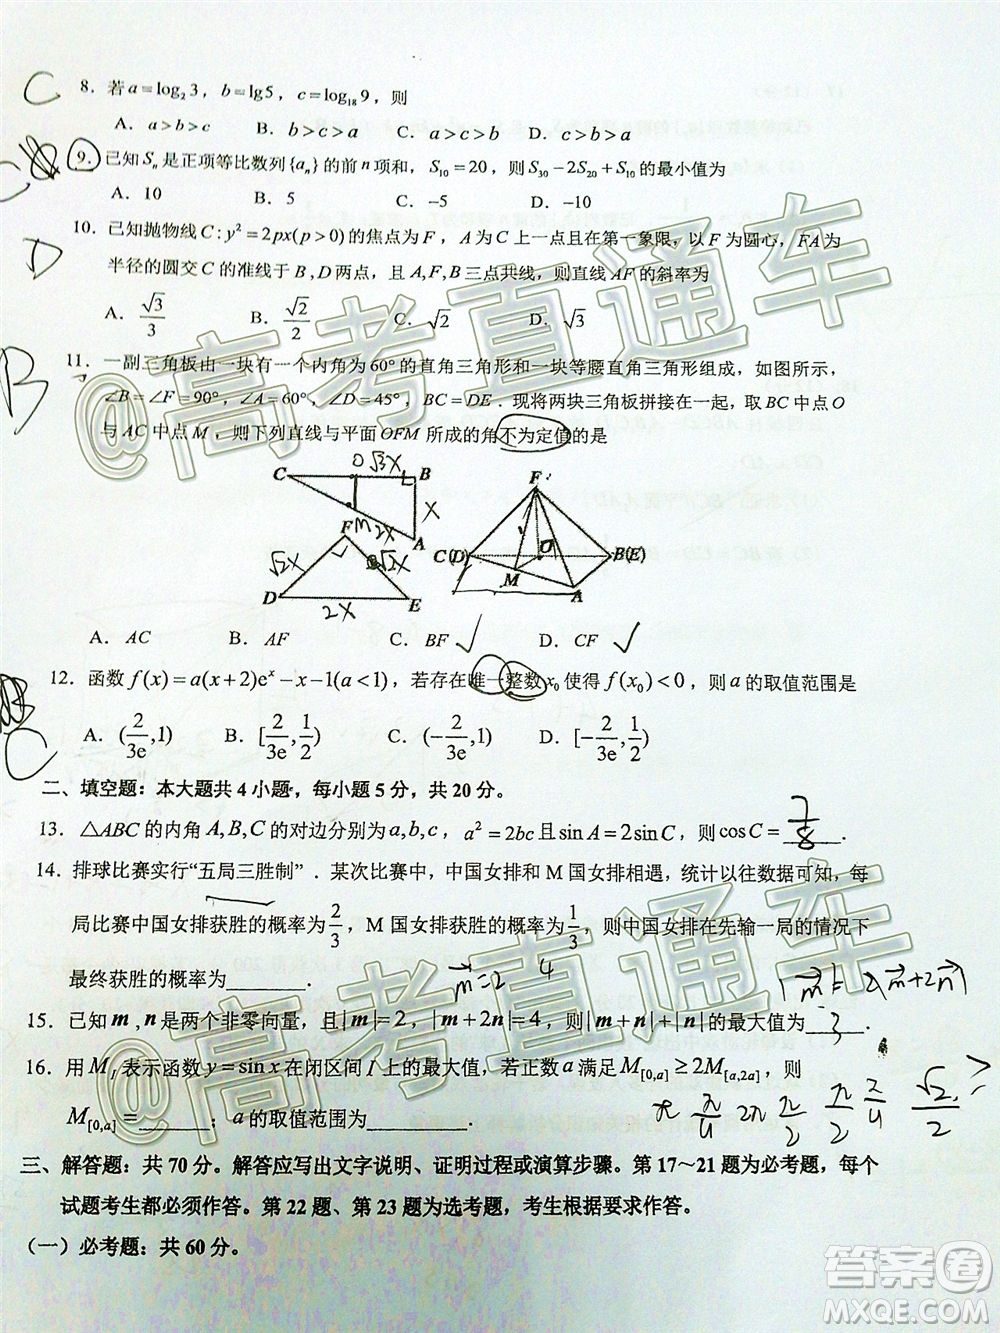 C
8．若 a=log₂3，b=lg5，c=log₁₈9，则
A．a>b>c B．b>c>a C．c>a>b D．c>b>a
9．已知 Sₙ 是正项等比数列{aₙ}的前 n 项和，S₁₀=20，则 S₃₀−2S₂₀+S₁₀ 的最小值为
A．10 B．5 C．−5 D．−10
10．已知抛物线 C:y²=2px(p>0)的焦点为 F，A 为 C 上一点且在第一象限，以 F 为圆心，FA 为
D
半径的圆交 C 的准线于 B,D 两点，且 A,F,B 三点共线，则直线 AF 的斜率为
A．√3/3 B．√2/2 C．√2 D．√3
11．一副三角板由一块有一个内角为60°的直角三角形和一块等腰直角三角形组成，如图所示，
B
∠B=∠F=90°，∠A=60°，∠D=45°，BC=DE．现将两块三角板拼接在一起，取 BC 中点 O
与 AC 中点 M，则下列直线与平面 OFM 所成的角不为定值的是
C O √3x B
F M 2x x A
√2x √2x
D 2x E
F
C(D) O B(E)
M A
A．AC B．AF C．BF √ D．CF √
12．函数 f(x)=a(x+2)eˣ−x−1(a<1)，若存在唯一整数 x₀ 使得 f(x₀)<0，则 a 的取值范围是
C
A．(2/3e,1) B．[2/3e,1/2) C．(−2/3e,1) D．[−2/3e,1/2)
二、填空题：本大题共 4 小题，每小题 5 分，共 20 分。
13．△ABC 的内角 A,B,C 的对边分别为 a,b,c，a²=2bc 且 sin A=2sin C，则 cos C= 7/8 ．
14．排球比赛实行“五局三胜制”．某次比赛中，中国女排和 M 国女排相遇，统计以往数据可知，每
局比赛中国女排获胜的概率为2/3，M 国女排获胜的概率为1/3，则中国女排在先输一局的情况下
最终获胜的概率为________．
m=2 4 |m|=2|m+2n|
15．已知 m,n 是两个非零向量，且|m|=2，|m+2n|=4，则|m+n|+|n|的最大值为 3 ．
16．用 M_I 表示函数 y=sin x 在闭区间 I 上的最大值，若正数 a 满足 M[0,a]≥2M[a,2a]，则
M[0,a]=________；a 的取值范围为________．
π π/4 2π π/2 π/2 π/4 √2/2 ≥
三、解答题：共 70 分。解答应写出文字说明、证明过程或演算步骤。第 17～21 题为必考题，每个
试题考生都必须作答。第 22 题、第 23 题为选考题，考生根据要求作答。
（一）必考题：共 60 分。
@高考直通车
@高考直通车
答案圈
MXQE.COM